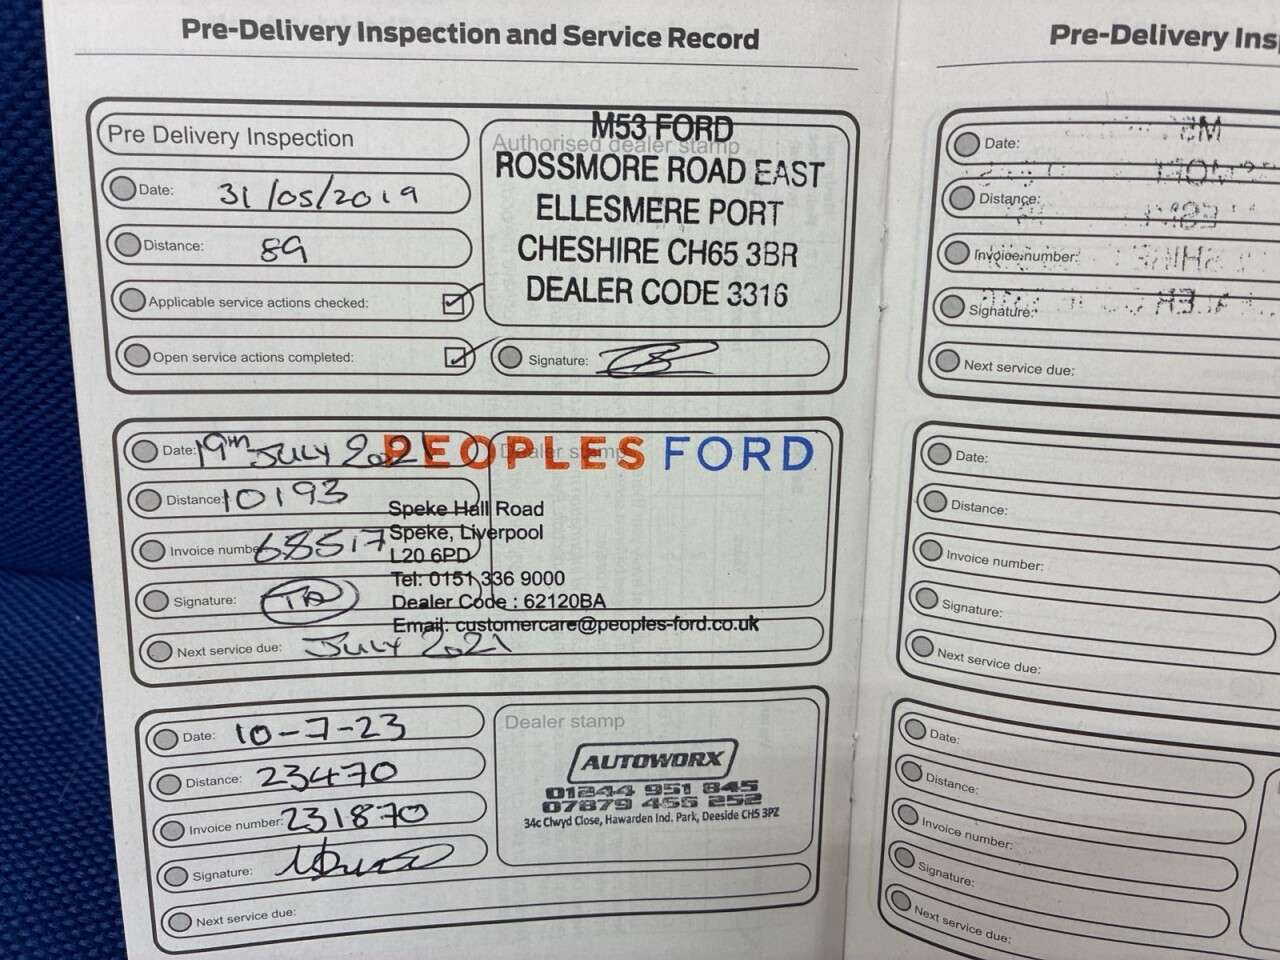 Pre-Delivery Inspection and Service Record
Pre Delivery Inspection
Date: 31/05/2019
Distance: 89
Applicable service actions checked:
Open service actions completed:
Authorised dealer stamp
M53 FORD
ROSSMORE ROAD EAST
ELLESMERE PORT
CHESHIRE CH65 3BR
DEALER CODE 3316
Signature:
Date: 19TH JULY 2021
Distance: 10193
Invoice number: 68517
Signature: TA
Next service due: JULY 2021
Dealer stamp
PEOPLES FORD
Speke Hall Road
Speke, Liverpool
L20 6PD
Tel: 0151 336 9000
Dealer Code : 62120BA
Email: customercare@peoples-ford.co.uk
Date: 10-7-23
Distance: 23470
Invoice number: 231870
Signature:
Next service due:
Dealer stamp
AUTOWORX
01244 951 845
07879 455 252
34c Clwyd Close, Hawarden Ind. Park, Deeside CH5 3PZ
Pre-Delivery Ins
Date:
Distance:
Invoice number:
Signature:
Next service due:
Date:
Distance:
Invoice number:
Signature:
Next service due:
Date:
Distance:
Invoice number:
Signature:
Next service due: